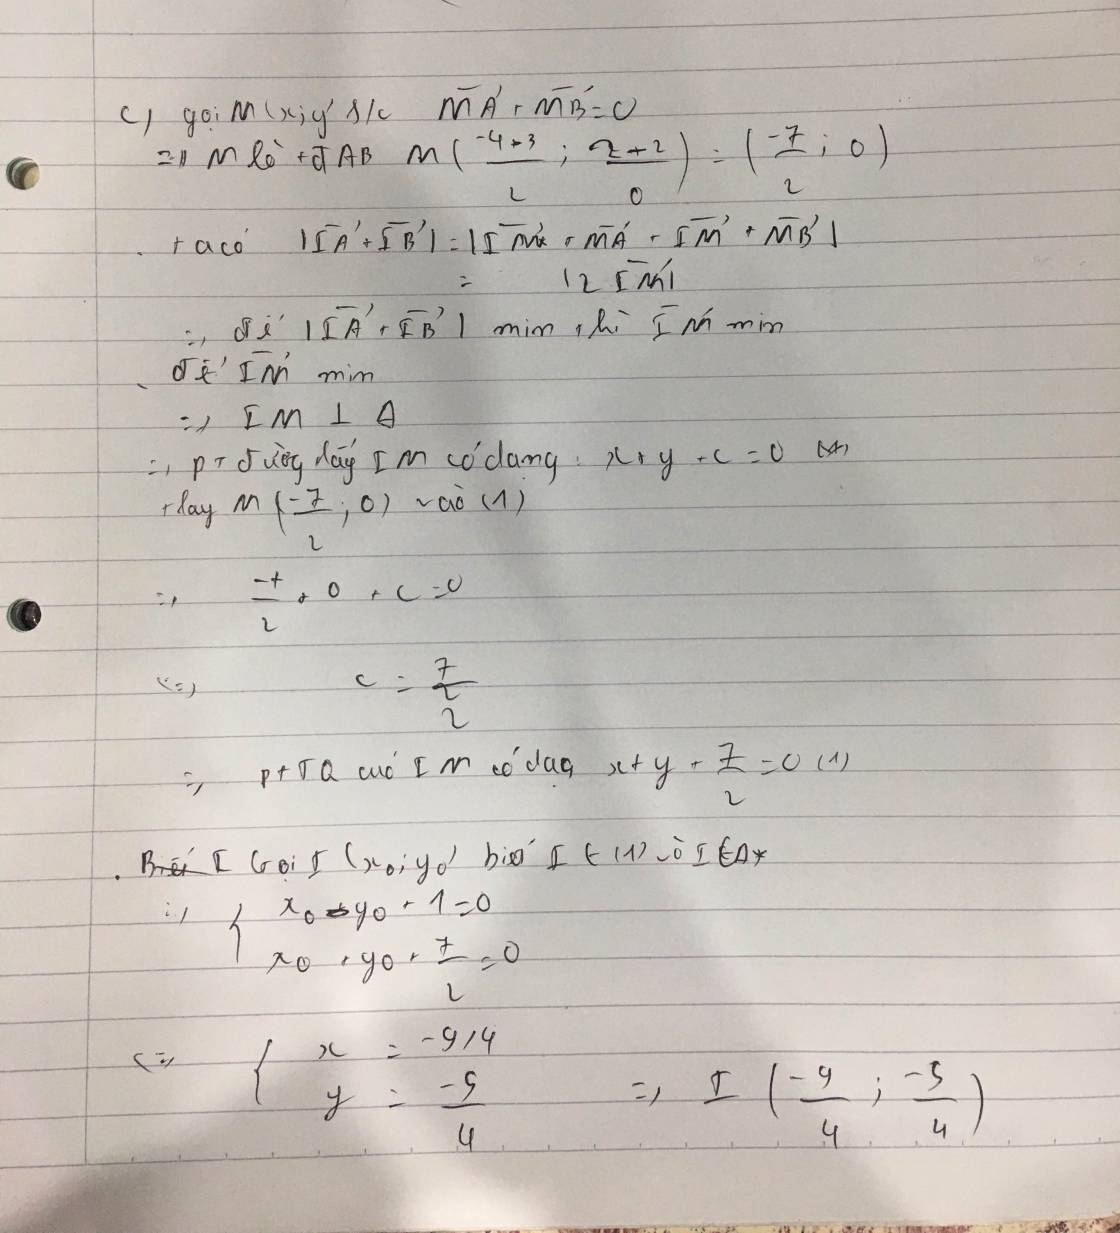 c) gọi M(x;y) s/c MA + MB = 0
=> M là tđ AB M(-4+3/2 ; 2+2/0) = (-7/2 ; 0)
. ta có |IA + IB| = |IM + MA + IM + MB|
= |2 IM|
=> để |IA + IB| min thì IM min
. để IM min
=> IM ⊥ Δ
=> pt đường thẳng IM có dạng: x + y + c = 0
thay M(-7/2 ; 0) vào (1)
=> -7/2 + 0 + c = 0
<=> c = 7/2
=> ptTQ của IM có dạng x + y + 7/2 = 0 (1)
. I Gọi I(x0; y0) biết I ∈ (1) và I ∈ Δ
=> { x0 - y0 + 1 = 0
x0 + y0 + 7/2 = 0
<=> { x = -9/4
y = -5/4 => I (-9/4 ; -5/4)